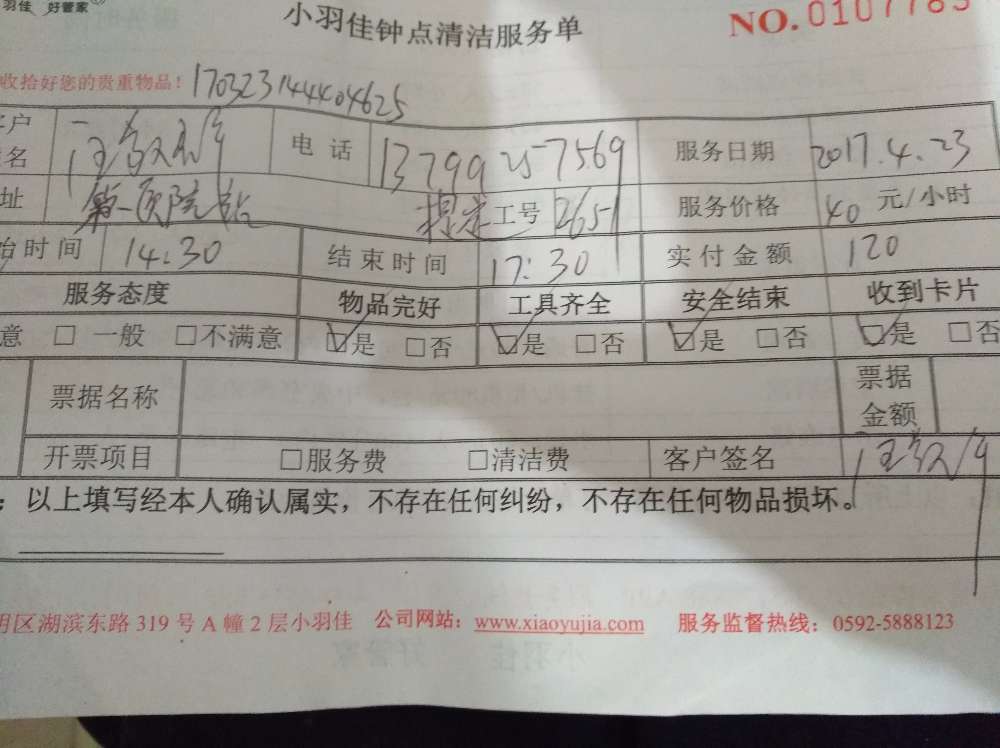 羽佳 好管家
小羽佳钟点清洁服务单
NO.0107785
收拾好您的贵重物品! 170323144404625
客户 电话 13799257569 服务日期 2017.4.23
名
址 第一医院站 工号 2651 服务价格 40 元/小时
始时间 14:30 结束时间 17:30 实付金额 120
服务态度 物品完好 工具齐全 安全结束 收到卡片
意 □ 一般 □不满意 ☑是 □否 ☑是 □否 ☑是 □否 ☑是 □否
票据名称 票据金额
开票项目 □服务费 □清洁费 客户签名
：以上填写经本人确认属实，不存在任何纠纷，不存在任何物品损坏。
明区湖滨东路 319 号 A 幢 2 层小羽佳 公司网站：www.xiaoyujia.com 服务监督热线：0592-5888123